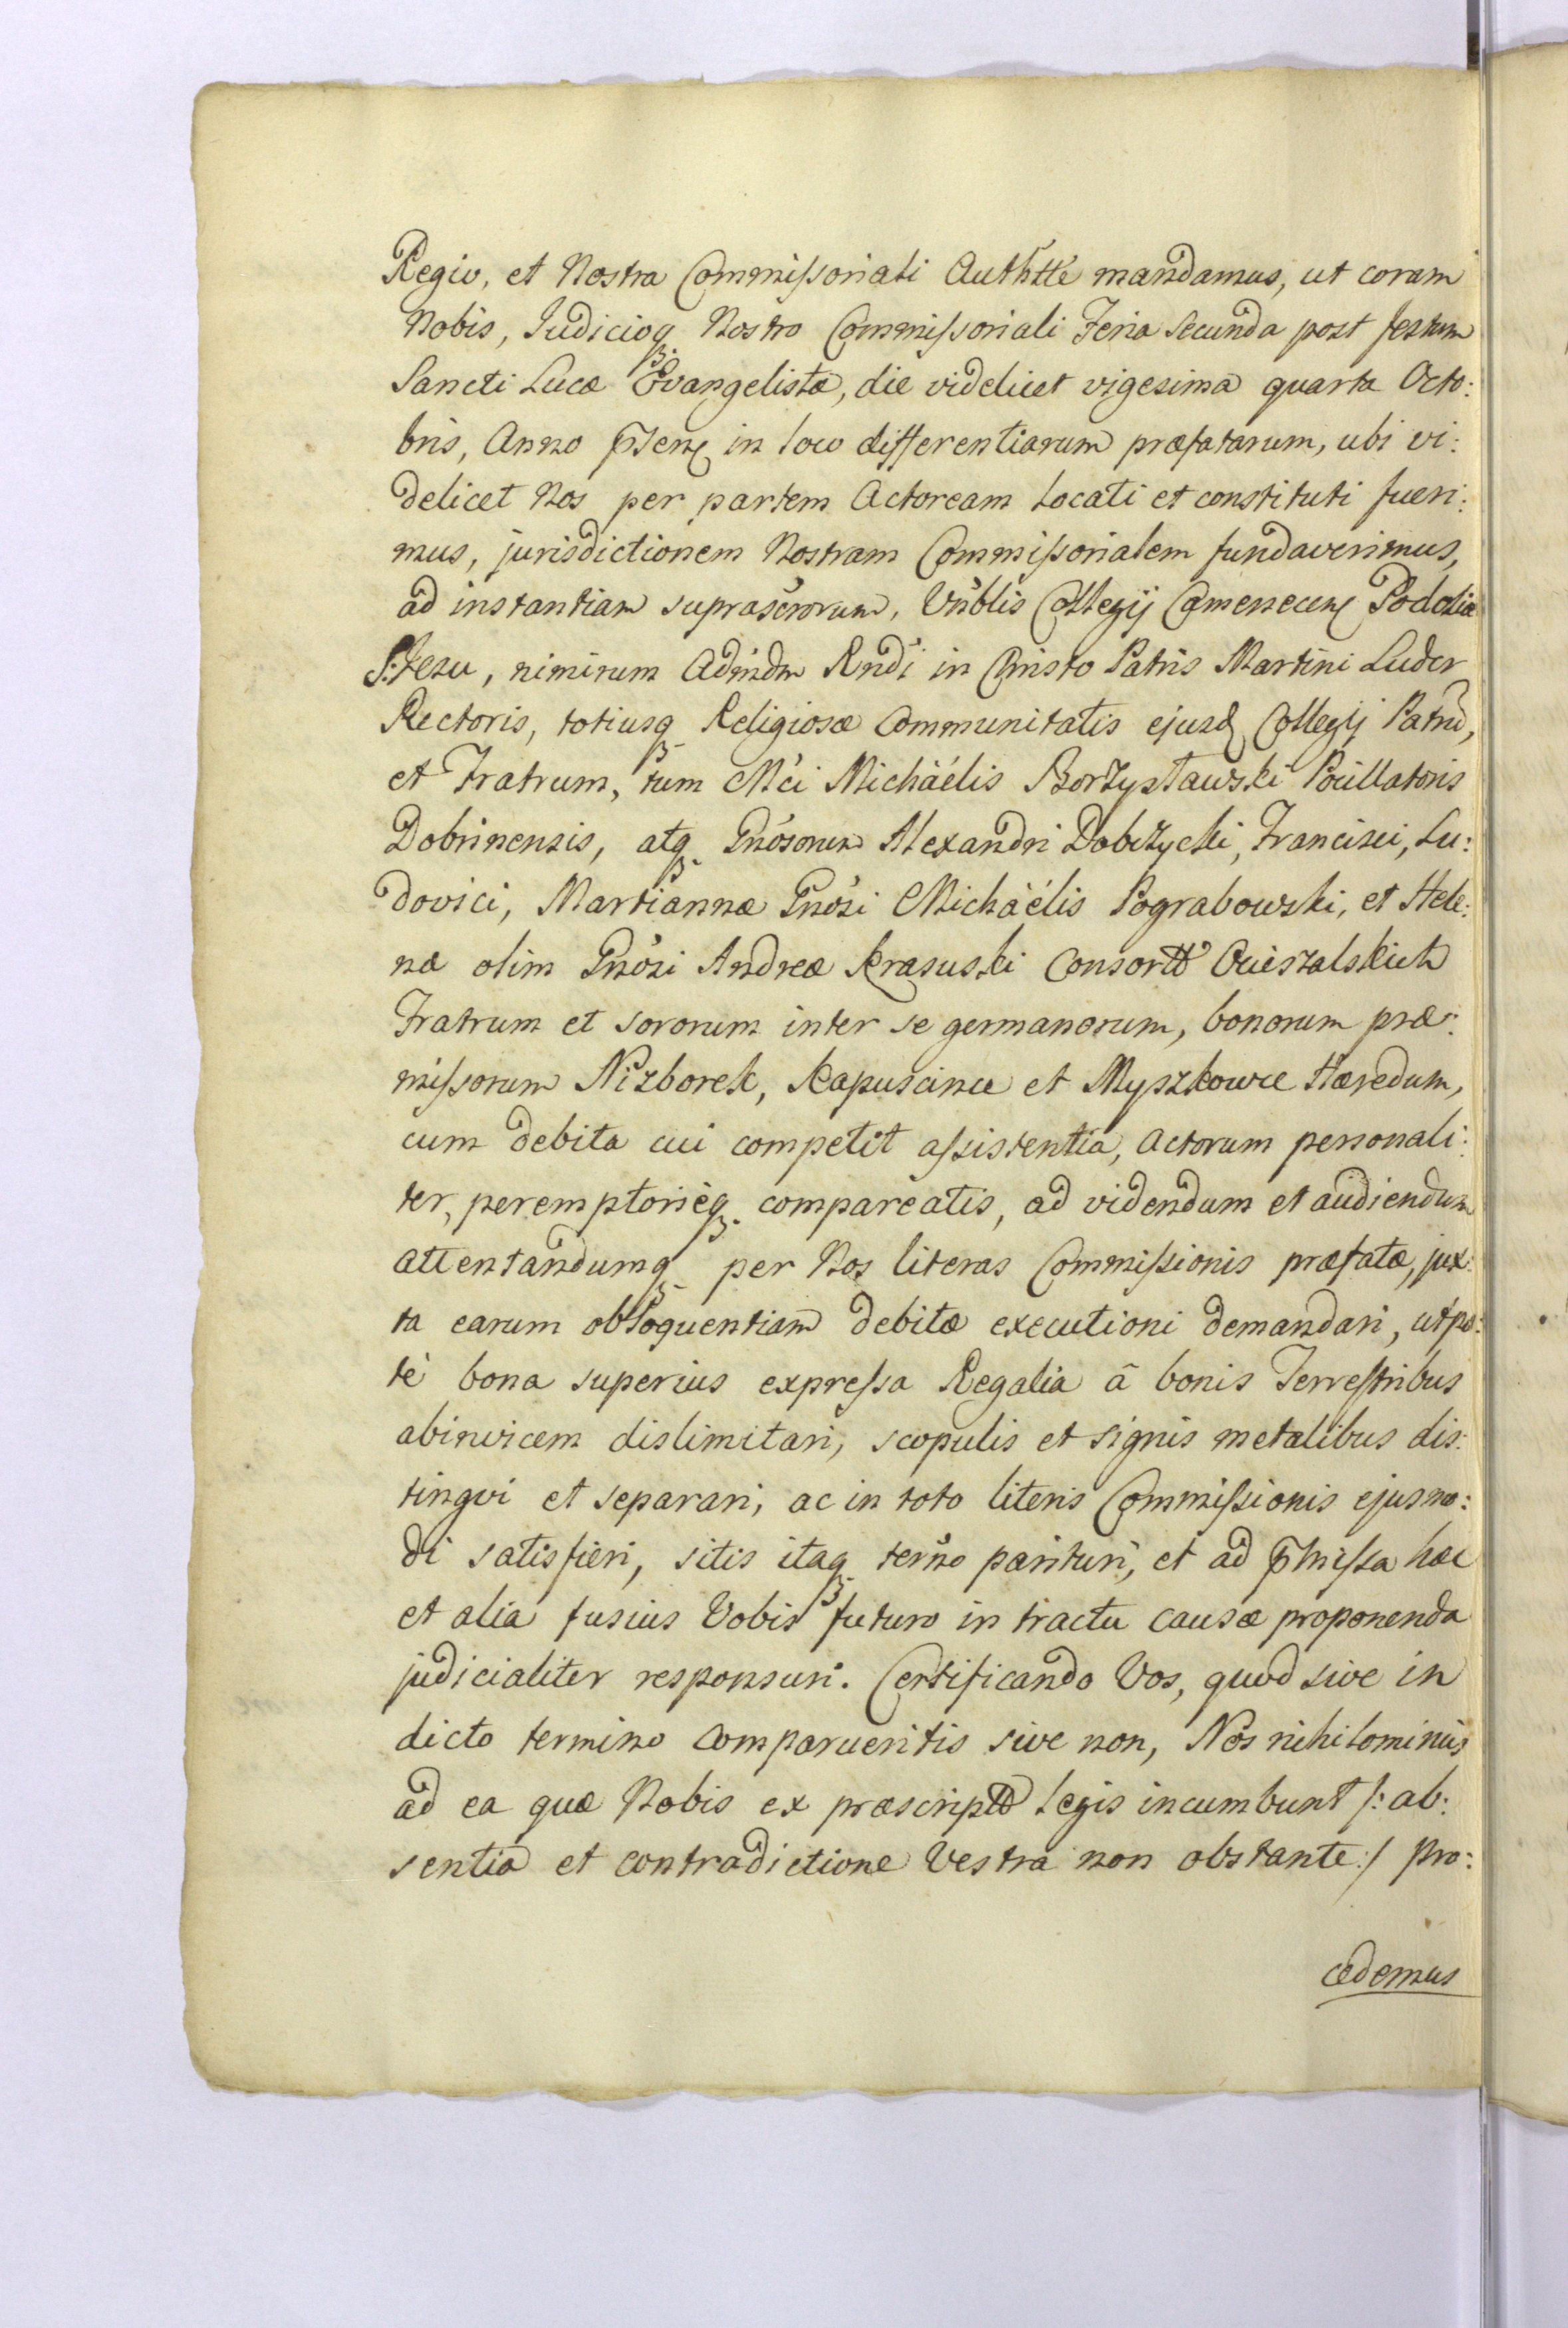 Regio, et Nostra Commissoriali Authtte mandamus, ut coram
Nobis, Iudicioq Nostro Commissoriali Feria Secunda post festum
Sancti Lucæ Evangelistæ, die videlicet vigesima quarta Octo:
bris, Anno p̃sen in loco differentiarum præfatarum, ubi vi:
delicet Nos per partem Actoream locati et constituti fueri:
mus, jurisdictionem Nostram Commissorialem fundaverimus,
ad instantiam suprascrorum, Vnblis Collegij Camenecen Podoliæ
S: Iesu, nimirum Admdm Rndi in Christo Patris Martini Luder
Rectoris, totiusq Religiosæ Communitatis ejusd Collegij Patrũ,
et Fratrum, tum Mci Michäélis Borzysławski Pocillatoris
Dobrinensis, atq Gnosorum Alexandri Dobrzycki, Francisci, Lu:
dovici, Martiannæ Gnosi Michäélis Pograbowski, et Hele:
næ olim Gnosi Andreæ Krasuski Consortt Ocieszalskich
Fratrum et sororum inter se germanorum, bonorum præ:
missorum Nizborek, Kapuscince et Myszkowce Hæredum,
cum debita cui competit assistentia, Actorum personali:
ter, peremptorièq compareatis, ad videndum et audiendum
attentandumq per Nos literas Commissionis præfatæ, jux:
ta earum obloquentiam debitæ executioni demandari, utpo:
tè bona superius expressa Regalia â bonis Terrestribus
abinvicem dislimitari, scopulis et signis metalibus dis:
tingvi et separari, ac in toto literis Commissionis ejusmo:
di satisfieri, sitis itaq terno parituri, et ad p̃missa hæc
et alia fusius Vobis futuro in tractu causæ proponenda
judicialiter responsuri. Certificando Vos, quod sive in
dicto termino comparueritis sive non, Nos nihilominus
ad ea quæ Nobis ex præscripto legis incumbunt /: ab:
sentia et contradictione Vestra non obstante :/ pro:
cedemus